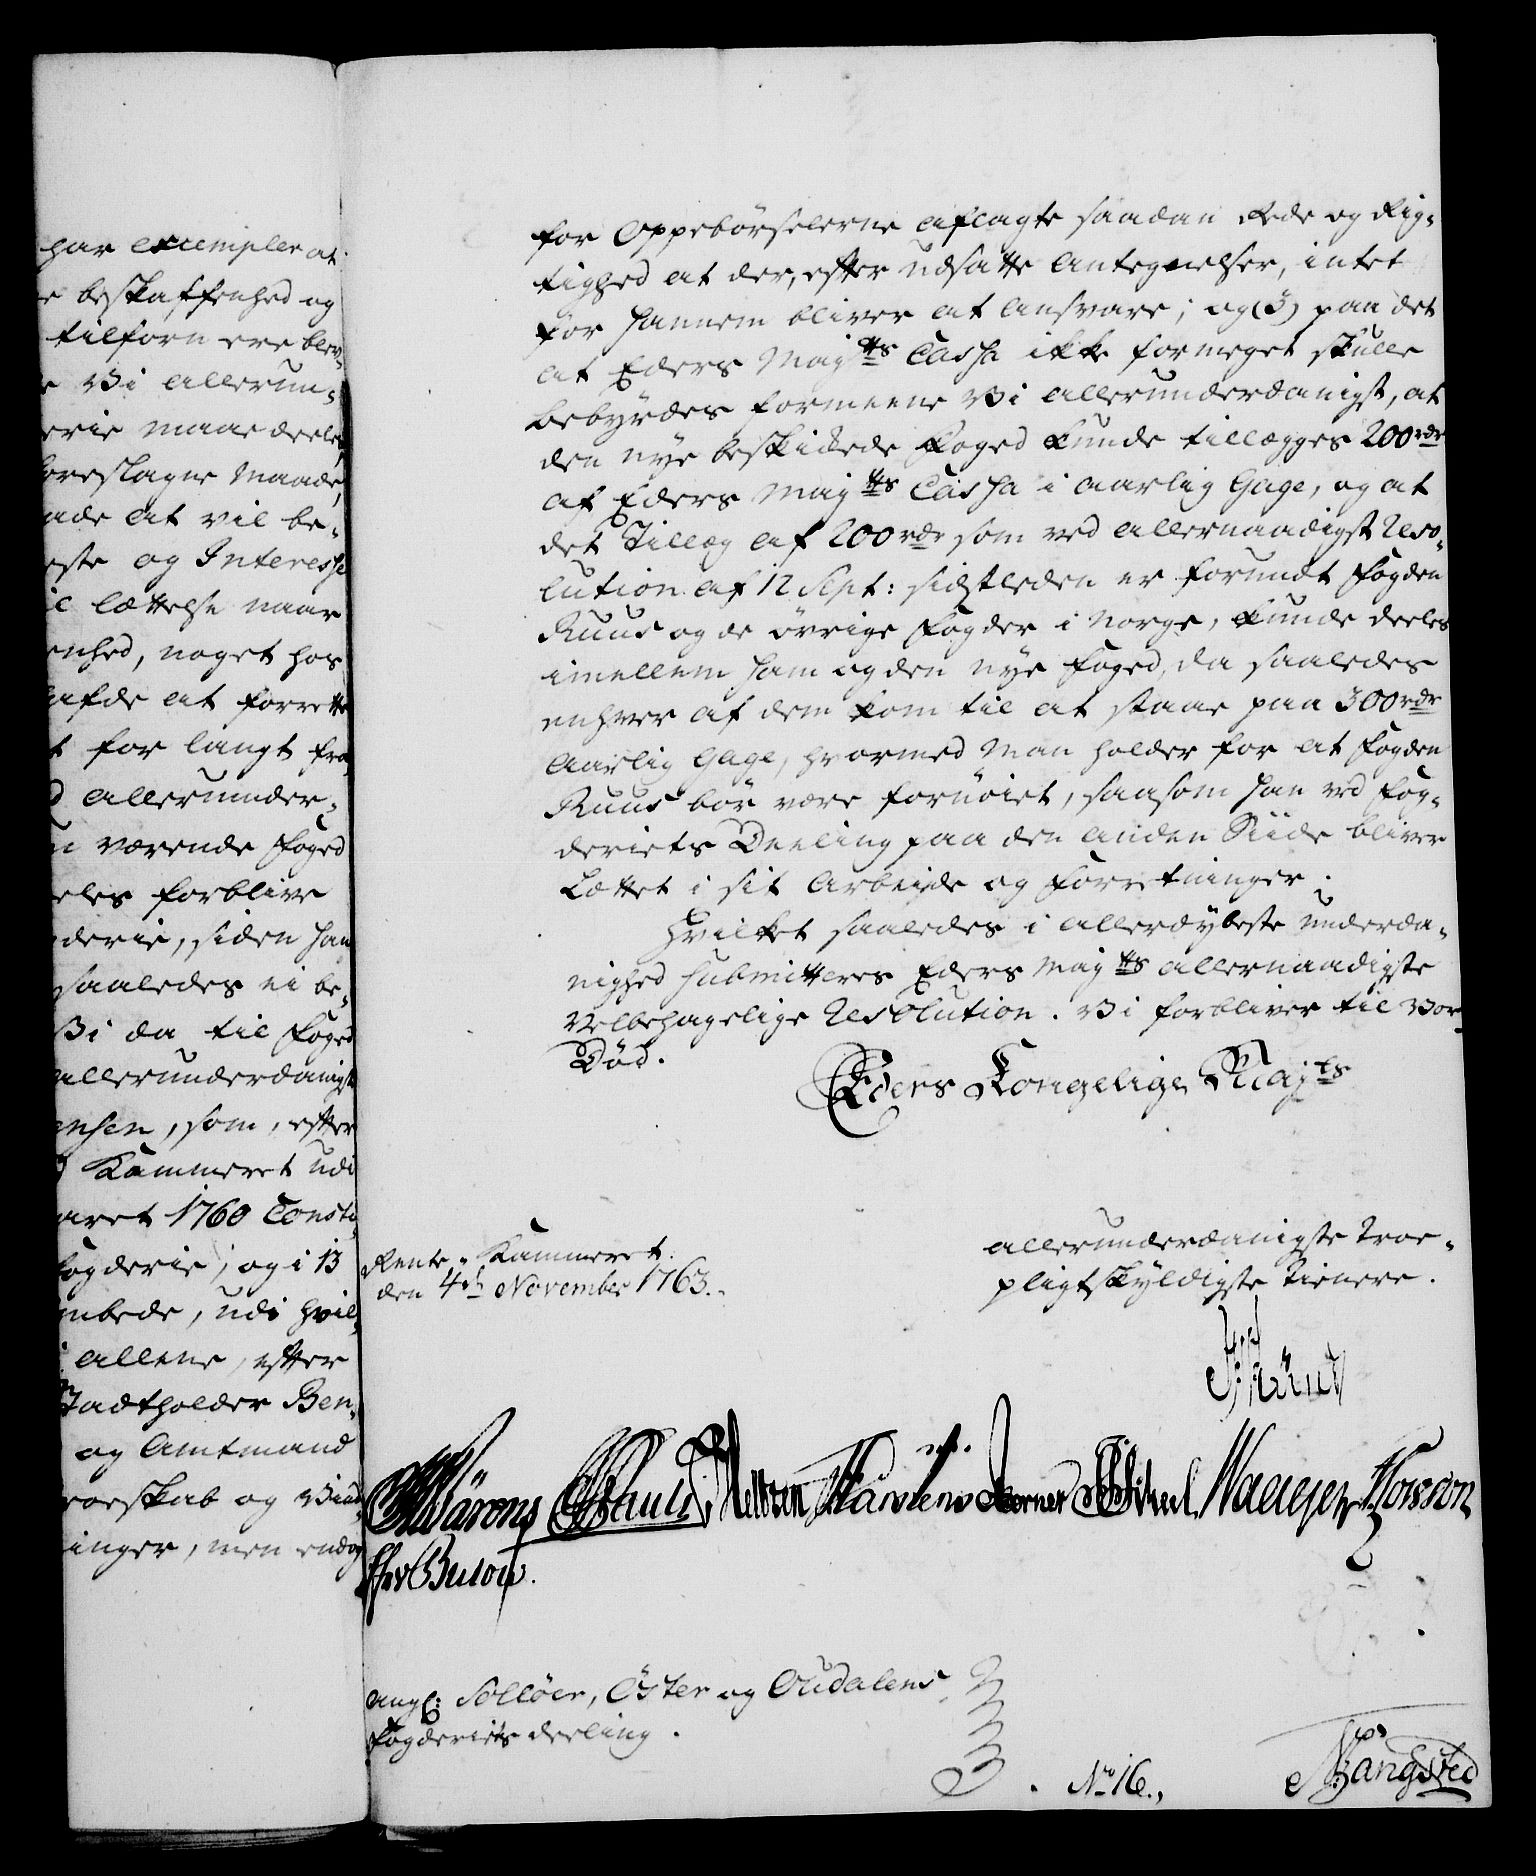 har exempler at
beskaffenhed og
tilforn ere blev-
Vi allerun-
maae deeles
foreslagne Maade,
at vil be-
og Interesse
lættelse naar
noget hos
at forrette
for langt fra
allerunder-
værende Foged
forblive
siden han
saaledes ei be-
Vi da til Foged
allerunderdanigst
som, efter
Kammeret udi
1760 Consti-
Fogderie; og i 13
udi hvil-
allene, efter
Stadtholder Ben-
og Amtmand
og
men endog
for Oppebörselerne aflagte saadan Rede og Rig-
tighed at der, efter udsatte Antegnelser, intet
for hannem bliver at ansvare; og (3) paa det
at Eders Mayts Cassa ikke formeget skulle
bebyrdes formeene Vi allerunderdanigst, at
den nye beskikkede Foged kunde tillægges 200 rdr
af Eders Mayts Cassa i aarlig Gage, og at
det Tillæg af 200 rdr som ved allernaadigst Reso-
lution af 12 Sept: sidstleden er forundt Fogden
Ruus og de övrige Fogder i Norge, kunde deeles
imellem ham og den nye Foged, da saaledes
enhver af dem kom til at staae paa 300 rdr
Aarlig Gage, hvormed Man holder for at Fogden
Ruus bör være fornöiet, saasom han ved Fog-
deriets Deeling paa den anden Siide bliver
Lættet i sit Arbejde og Forretninger.
Hvilket saaledes i allerdybeste underda-
nighed submitteres Eders Mayts allernaadigste
Velbehagelige Resolution. Vi forbliver til Vor
Död.
Eders Kongelige Mayts
Rente-Kammeret.
den 4de November 1763.
allerunderdanigste Troe-
pligtskyldigste Tienere.
Wärens Nelbren Karstens Hersleb
v Bulow.
ang: Solløer, Öster og Oudalens
Fogderiets deeling.
No 16.
Bangsted